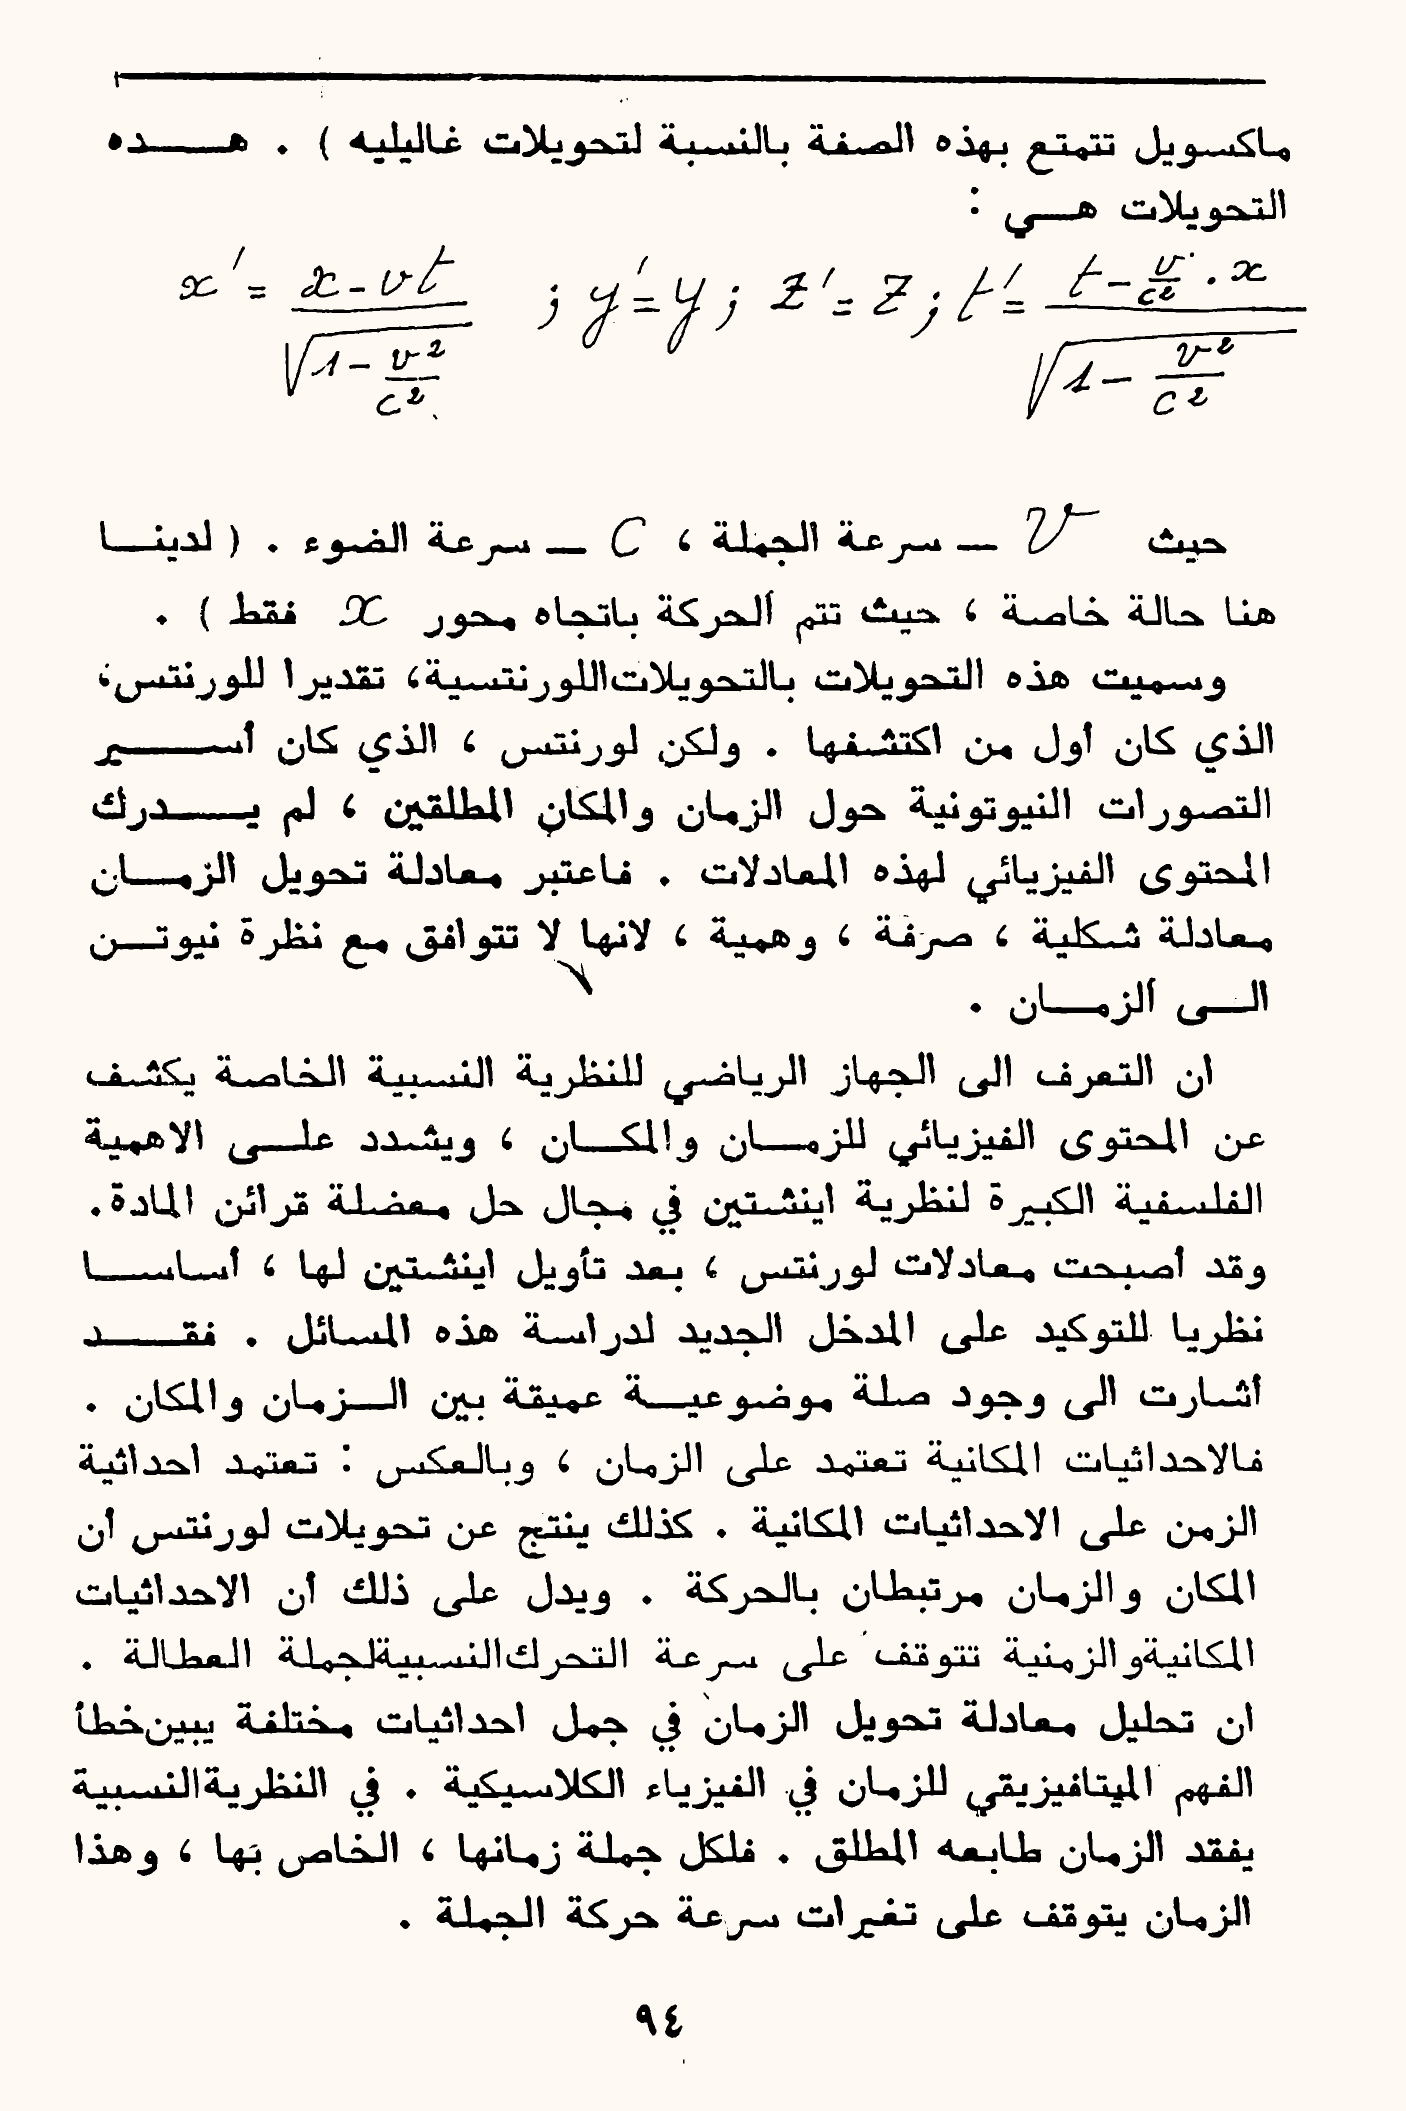 ماكسويل تتمتع بهذه الصفة بالنسبة لتحويلات غاليليه ) . هـــــذه
التحويلات هــي :
x' = (x - vt) / √(1 - v²/c²) ; y' = y ; z' = z ; t' = (t - v/c² . x) / √(1 - v²/c²)
حيث v ــ سرعة الجملة ، C ــ سرعة الضوء . ( لدينــا
هنا حالة خاصة ، حيث تتم الحركة باتجاه محور x فقط ) .
وسميت هذه التحويلات بالتحويلات اللورنتسية، تقديرا للورنتس،
الذي كان أول من اكتشفها . ولكن لورنتس ، الذي كان أســــير
التصورات النيوتونية حول الزمان والمكان المطلقين ، لم يـــدرك
المحتوى الفيزيائي لهذه المعادلات . فاعتبر معادلة تحويل الزمــان
معادلة شكلية ، صرفة ، وهمية ، لانها لا تتوافق مع نظرة نيوتــن
الــى الزمــان .
ان التعرف الى الجهاز الرياضي للنظرية النسبية الخاصة يكشف
عن المحتوى الفيزيائي للزمــان والمكــان ، ويشدد علــى الاهمية
الفلسفية الكبيرة لنظرية اينشتين في مجال حل معضلة قرائن المادة.
وقد أصبحت معادلات لورنتس ، بعد تأويل اينشتين لها ، أساســا
نظريا للتوكيد على المدخل الجديد لدراسة هذه المسائل . فقـــــد
أشارت الى وجود صلة موضوعيــة عميقة بين الــزمان والمكان .
فالاحداثيات المكانية تعتمد على الزمان ، وبالعكس : تعتمد احداثية
الزمن على الاحداثيات المكانية . كذلك ينتج عن تحويلات لورنتس أن
المكان والزمان مرتبطان بالحركة . ويدل على ذلك أن الاحداثيات
المكانية والزمنية تتوقف على سرعة التحرك النسبية لجملة العطالة .
ان تحليل معادلة تحويل الزمان في جمل احداثيات مختلفة يبين خطأ
الفهم الميتافيزيقي للزمان في الفيزياء الكلاسيكية . في النظرية النسبية
يفقد الزمان طابعه المطلق . فلكل جملة زمانها ، الخاص بها ، وهذا
الزمان يتوقف على تغيرات سرعة حركة الجملة .
٩٤